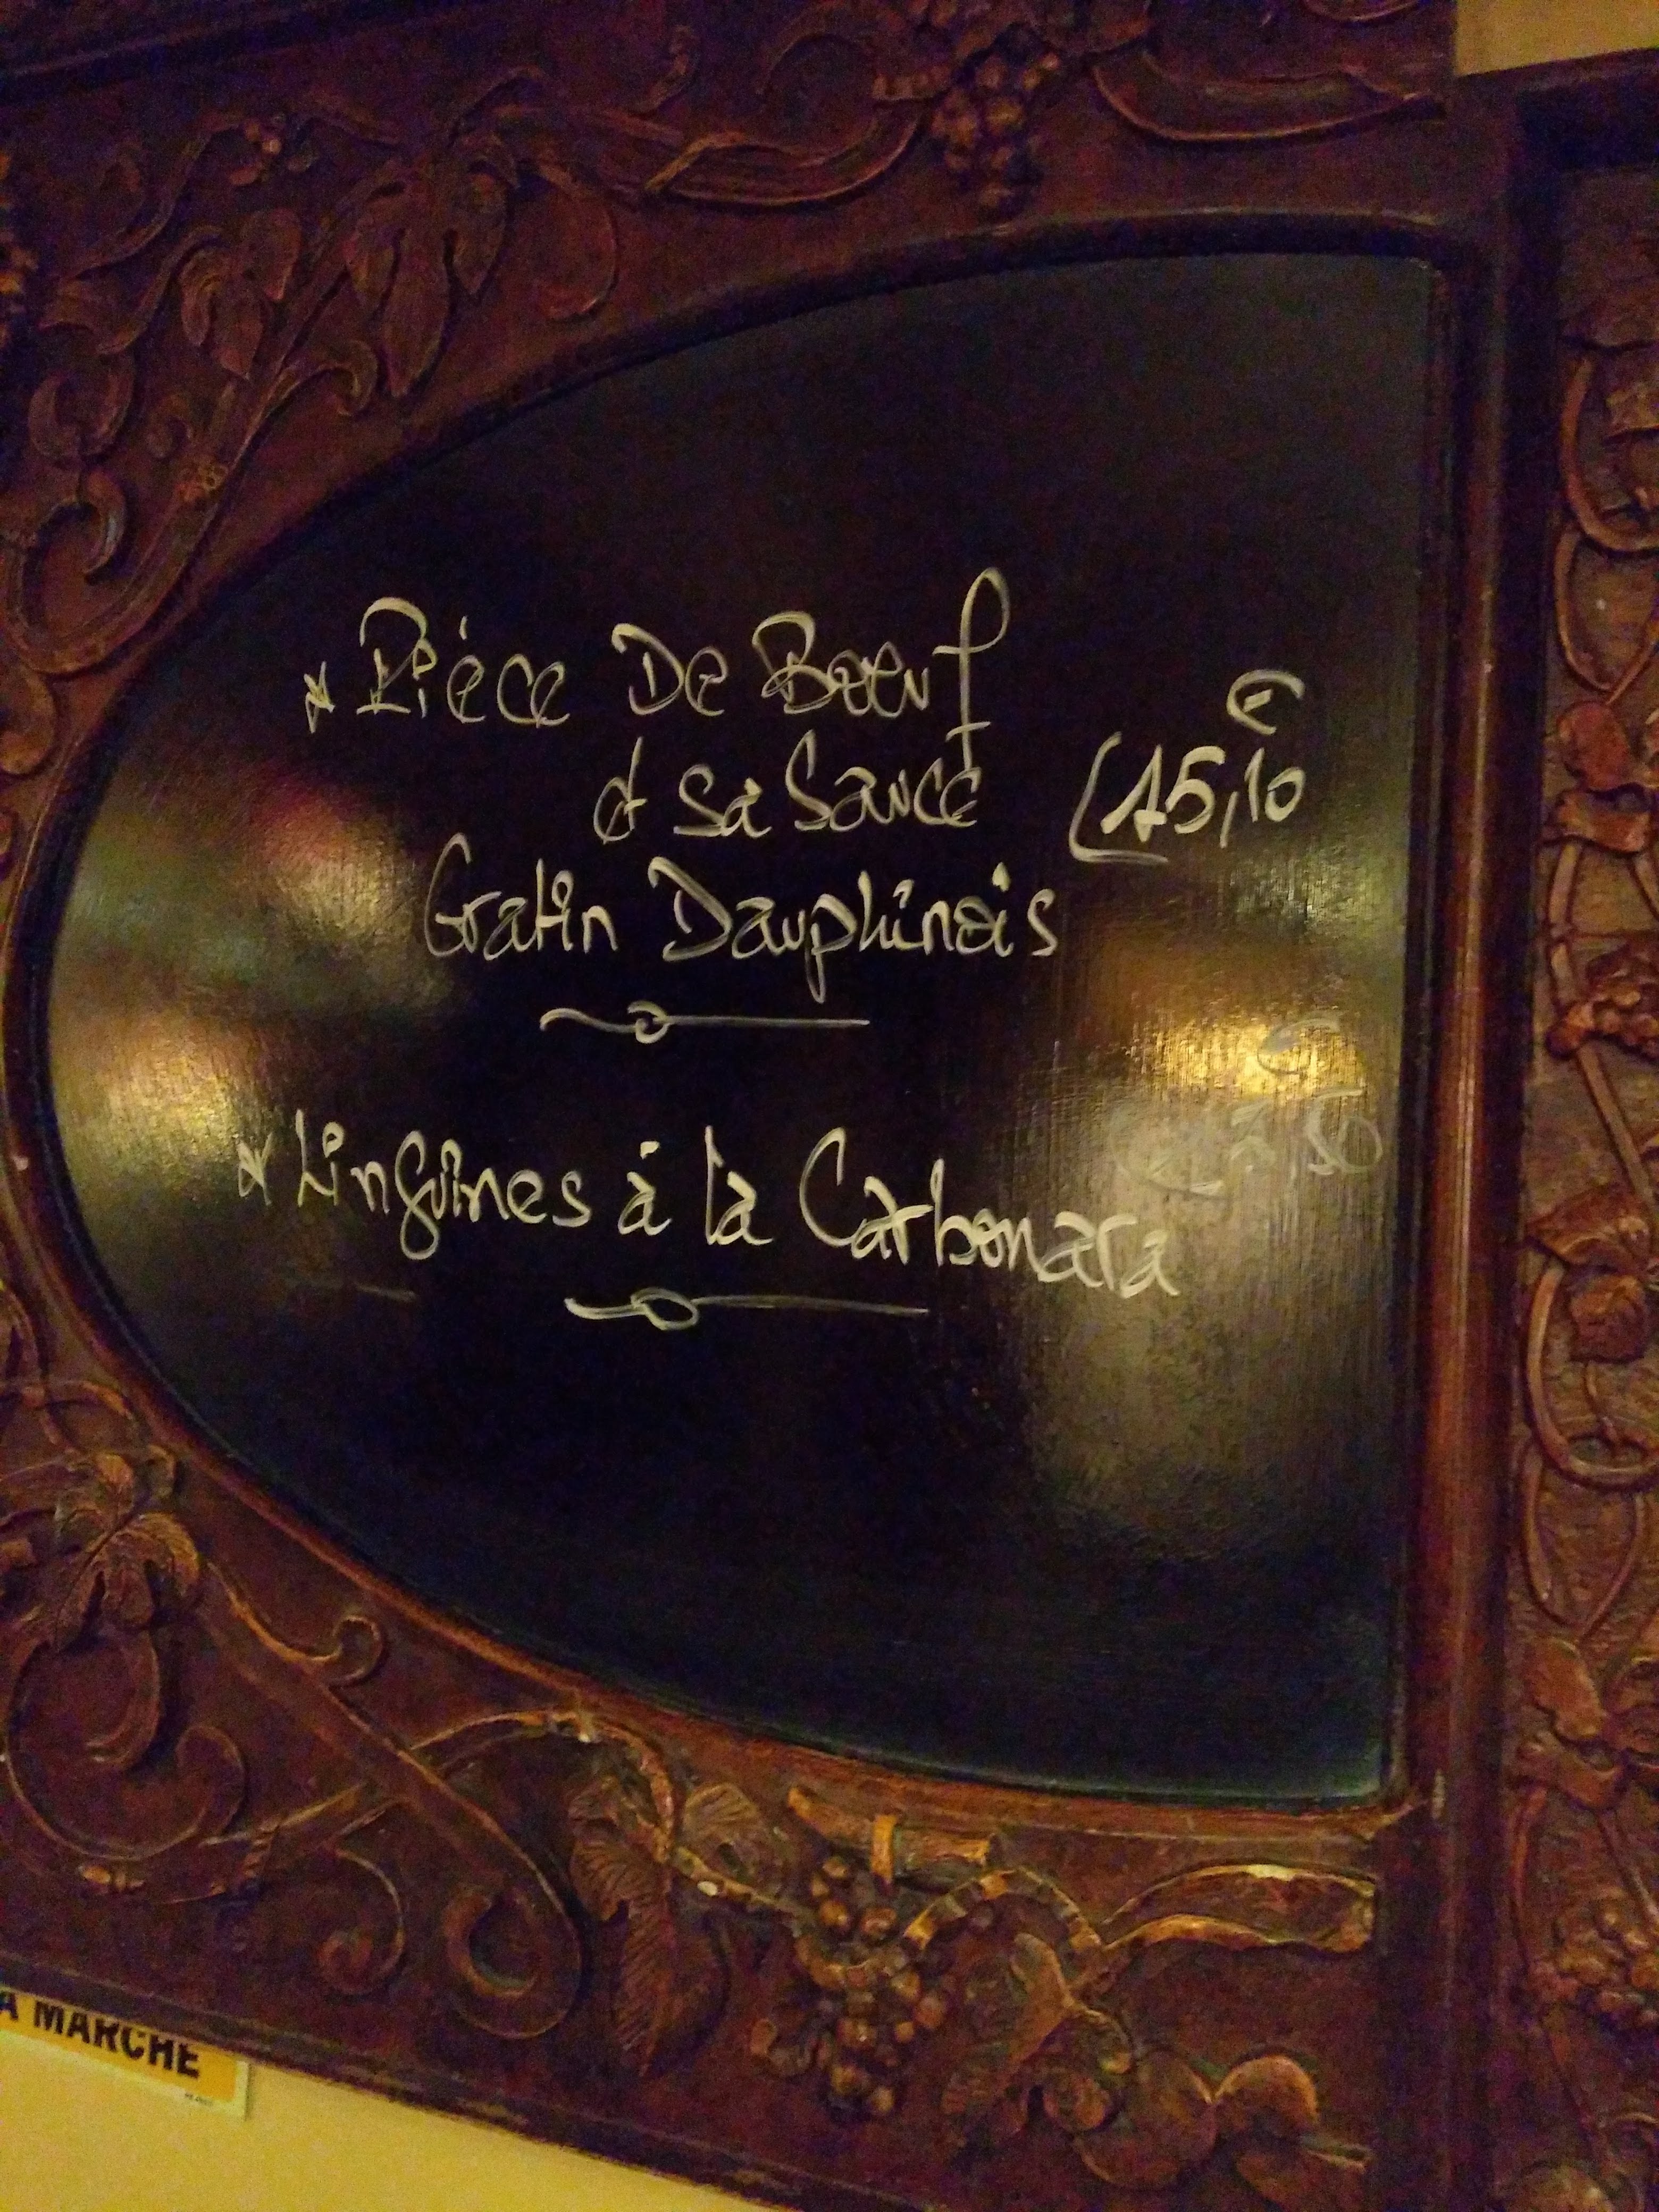 * Pièce De Bœuf
& sa Sauce
(15,10 €
Gratin Dauphinois
* Linguines à la Carbonara
A MARCHE